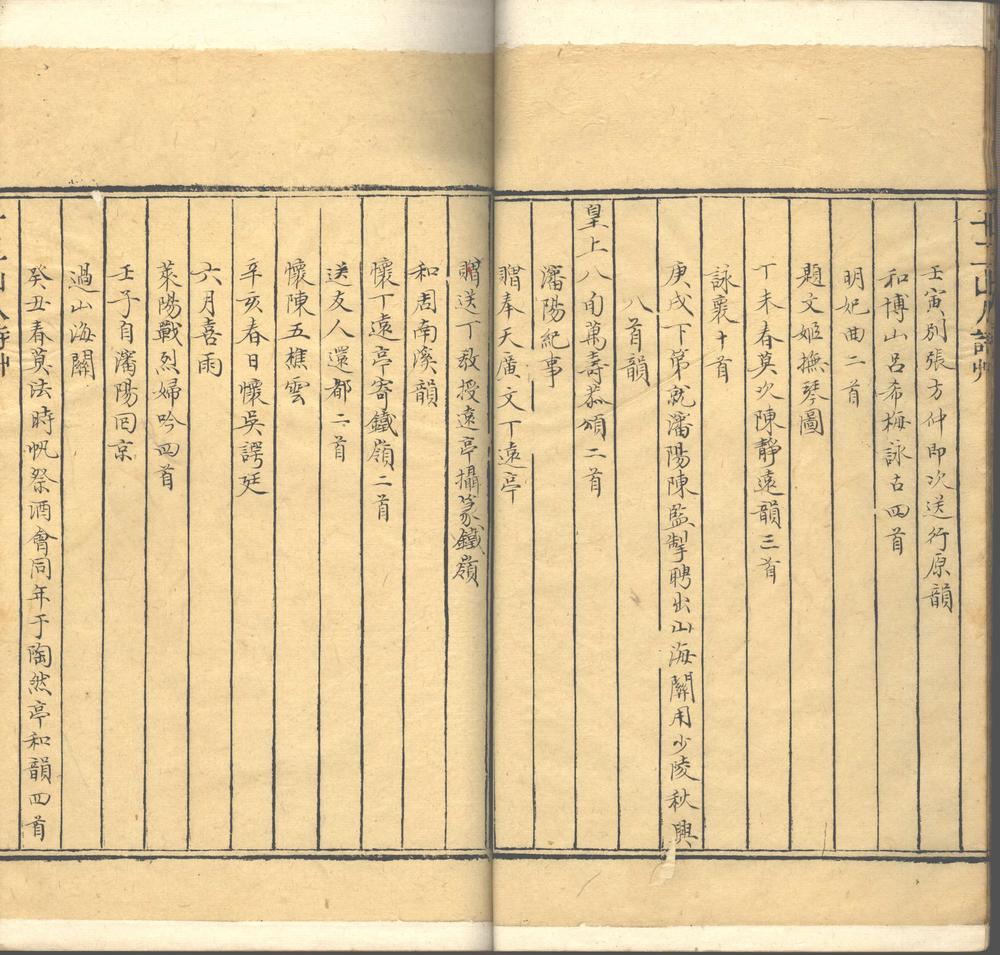 壬寅別張方仲即次送行原韻
和博山呂希梅詠古四首
明妃曲二首
題文姬撫琴圖
丁未春莫次陳靜遠韻三首
詠襄十首
庚戌下第就瀋陽陳監掣聘出山海關用少陵秋興
八首韻
皇上八旬萬壽恭頌二首
瀋陽紀事
贈奉天廣文丁遠亭
贈送丁教授遠亭攝篆鐵嶺
和周南溪韻
懷丁遠亭寄鐵嶺二首
送友人還都二首
懷陳五樵雲
辛亥春日懷吳諤廷
六月喜雨
萊陽戰烈婦吟四首
壬子自瀋陽回京
過山海關
癸丑春莫法時帆祭酒會同年于陶然亭和韻四首